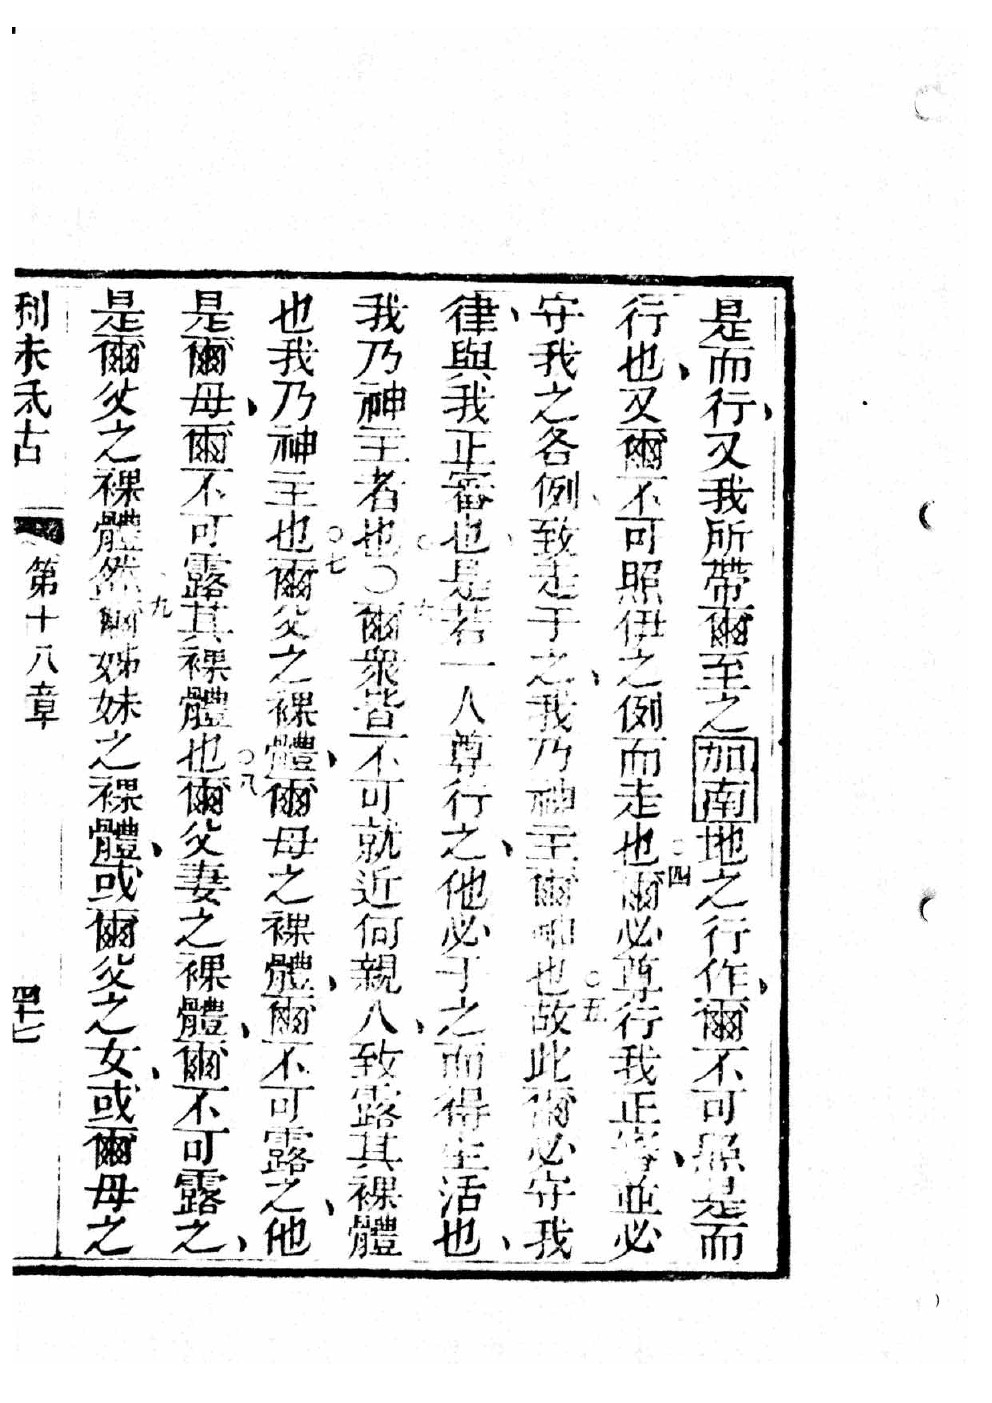 是而行又我所帶爾至之加南地之行作爾不可照是而
行也又爾不可照伊之例而走也四爾必尊行我正審並必
守我之各例致走于之我乃神主爾神也五故此爾必守我
律與我正審也是若一人尊行之他必于之而得生活也
我乃神主者也○六爾眾皆不可就近何親人致露其裸體
也我乃神主也七爾父之裸體爾母之裸體爾不可露之他
是爾母爾不可露其裸體也八爾父妻之裸體爾不可露之
是爾父之裸體然九爾姊妹之裸體或爾父之女或爾母之
利未氏古 第十八章 四十七